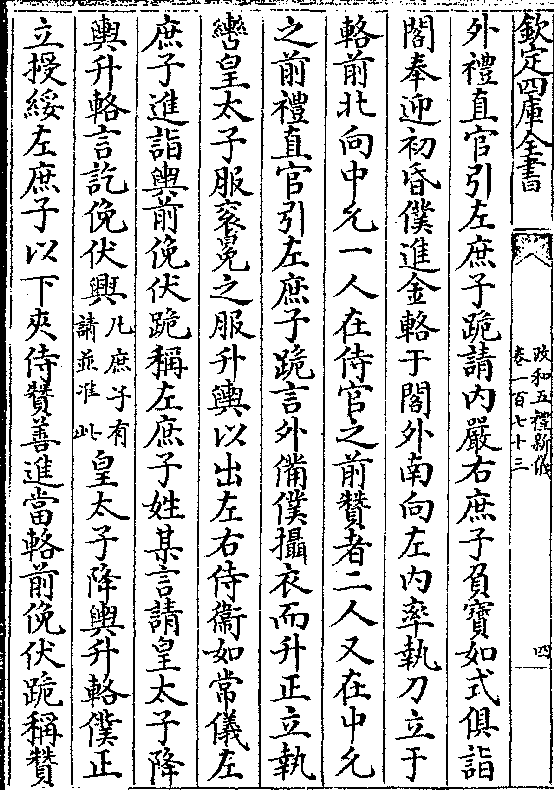 欽定四庫全書
政和五禮新儀
卷一百七十三
四
外禮直官引左庶子跪請内嚴右庶子負寶如式俱詣
閤奉迎初昏僕進金輅于閤外南向左内率執刀立于
輅前北向中允一人在侍官之前贊者二人又在中允
之前禮直官引左庶子跪言外備僕攝衣而升正立執
轡皇太子服衮冕之服升輿以出左右侍衛如常儀左
庶子進詣輿前俛伏跪稱左庶子姓某言請皇太子降
輿升輅言訖俛伏興凡庶子有請並准此皇太子降輿升輅僕正
立授綏左庶子以下夾侍贊善進當輅前俛伏跪稱贊